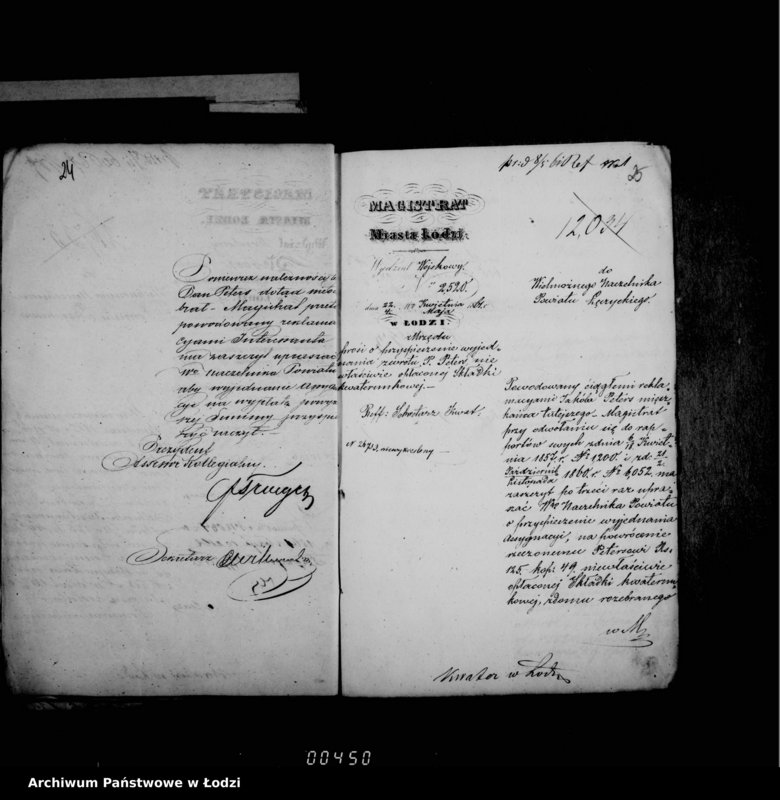 24
Ponieważ należności
Pan Peters dotąd nieo
brał – Magistrat prze
powodowany reklama
cyami Interesanta
ma zaszczyt upraszać
Wo Naczelnika Powiatu
aby wyjednanie assyg
cyi na wypłatę powyż
szej Summy przyspie
szyć raczył.–
Prezydent
Assesor Kollegialny
Traeger
Sekretarz
25
12,034
MAGISTRAT
Miasta Łodzi.
Wydział Wojskowy.
N 2520.
dnia 22 Kwietnia
Maja
w ŁODZI.
z Urzędu
prosi o przyspieszenie wyjed
nania zwrotu P. Peters nie
właściwie opłaconej Składki
kwaterunkowej.–
Reff: Sekretarz
do
Wielmożnego Naczelnika
Powiatu Łęczyckiego.
Powodowany ciągłemi rekla
macyami Jakóba Peters miesz
kańca tutejszego – Magistrat
przy odwołaniu się do rap
portów swych z dnia Kwiet
nia 1857 r. No 1200. i z d.
Października
Listopada 1860. r. No 6,052, ma
zaszczyt po trzeci raz upra
szać Wo Naczelnika Powiatu
o przyspieszenie wyjednania
assygnacyi, na powrócenie
rzeczonemu Petersowi Rs.
125. kop: 49. niewłaściwie
opłaconej Składki kwateru
kowej, z domu rozebranego
w M
w Łodzi
00450
Archiwum Państwowe w Łodzi